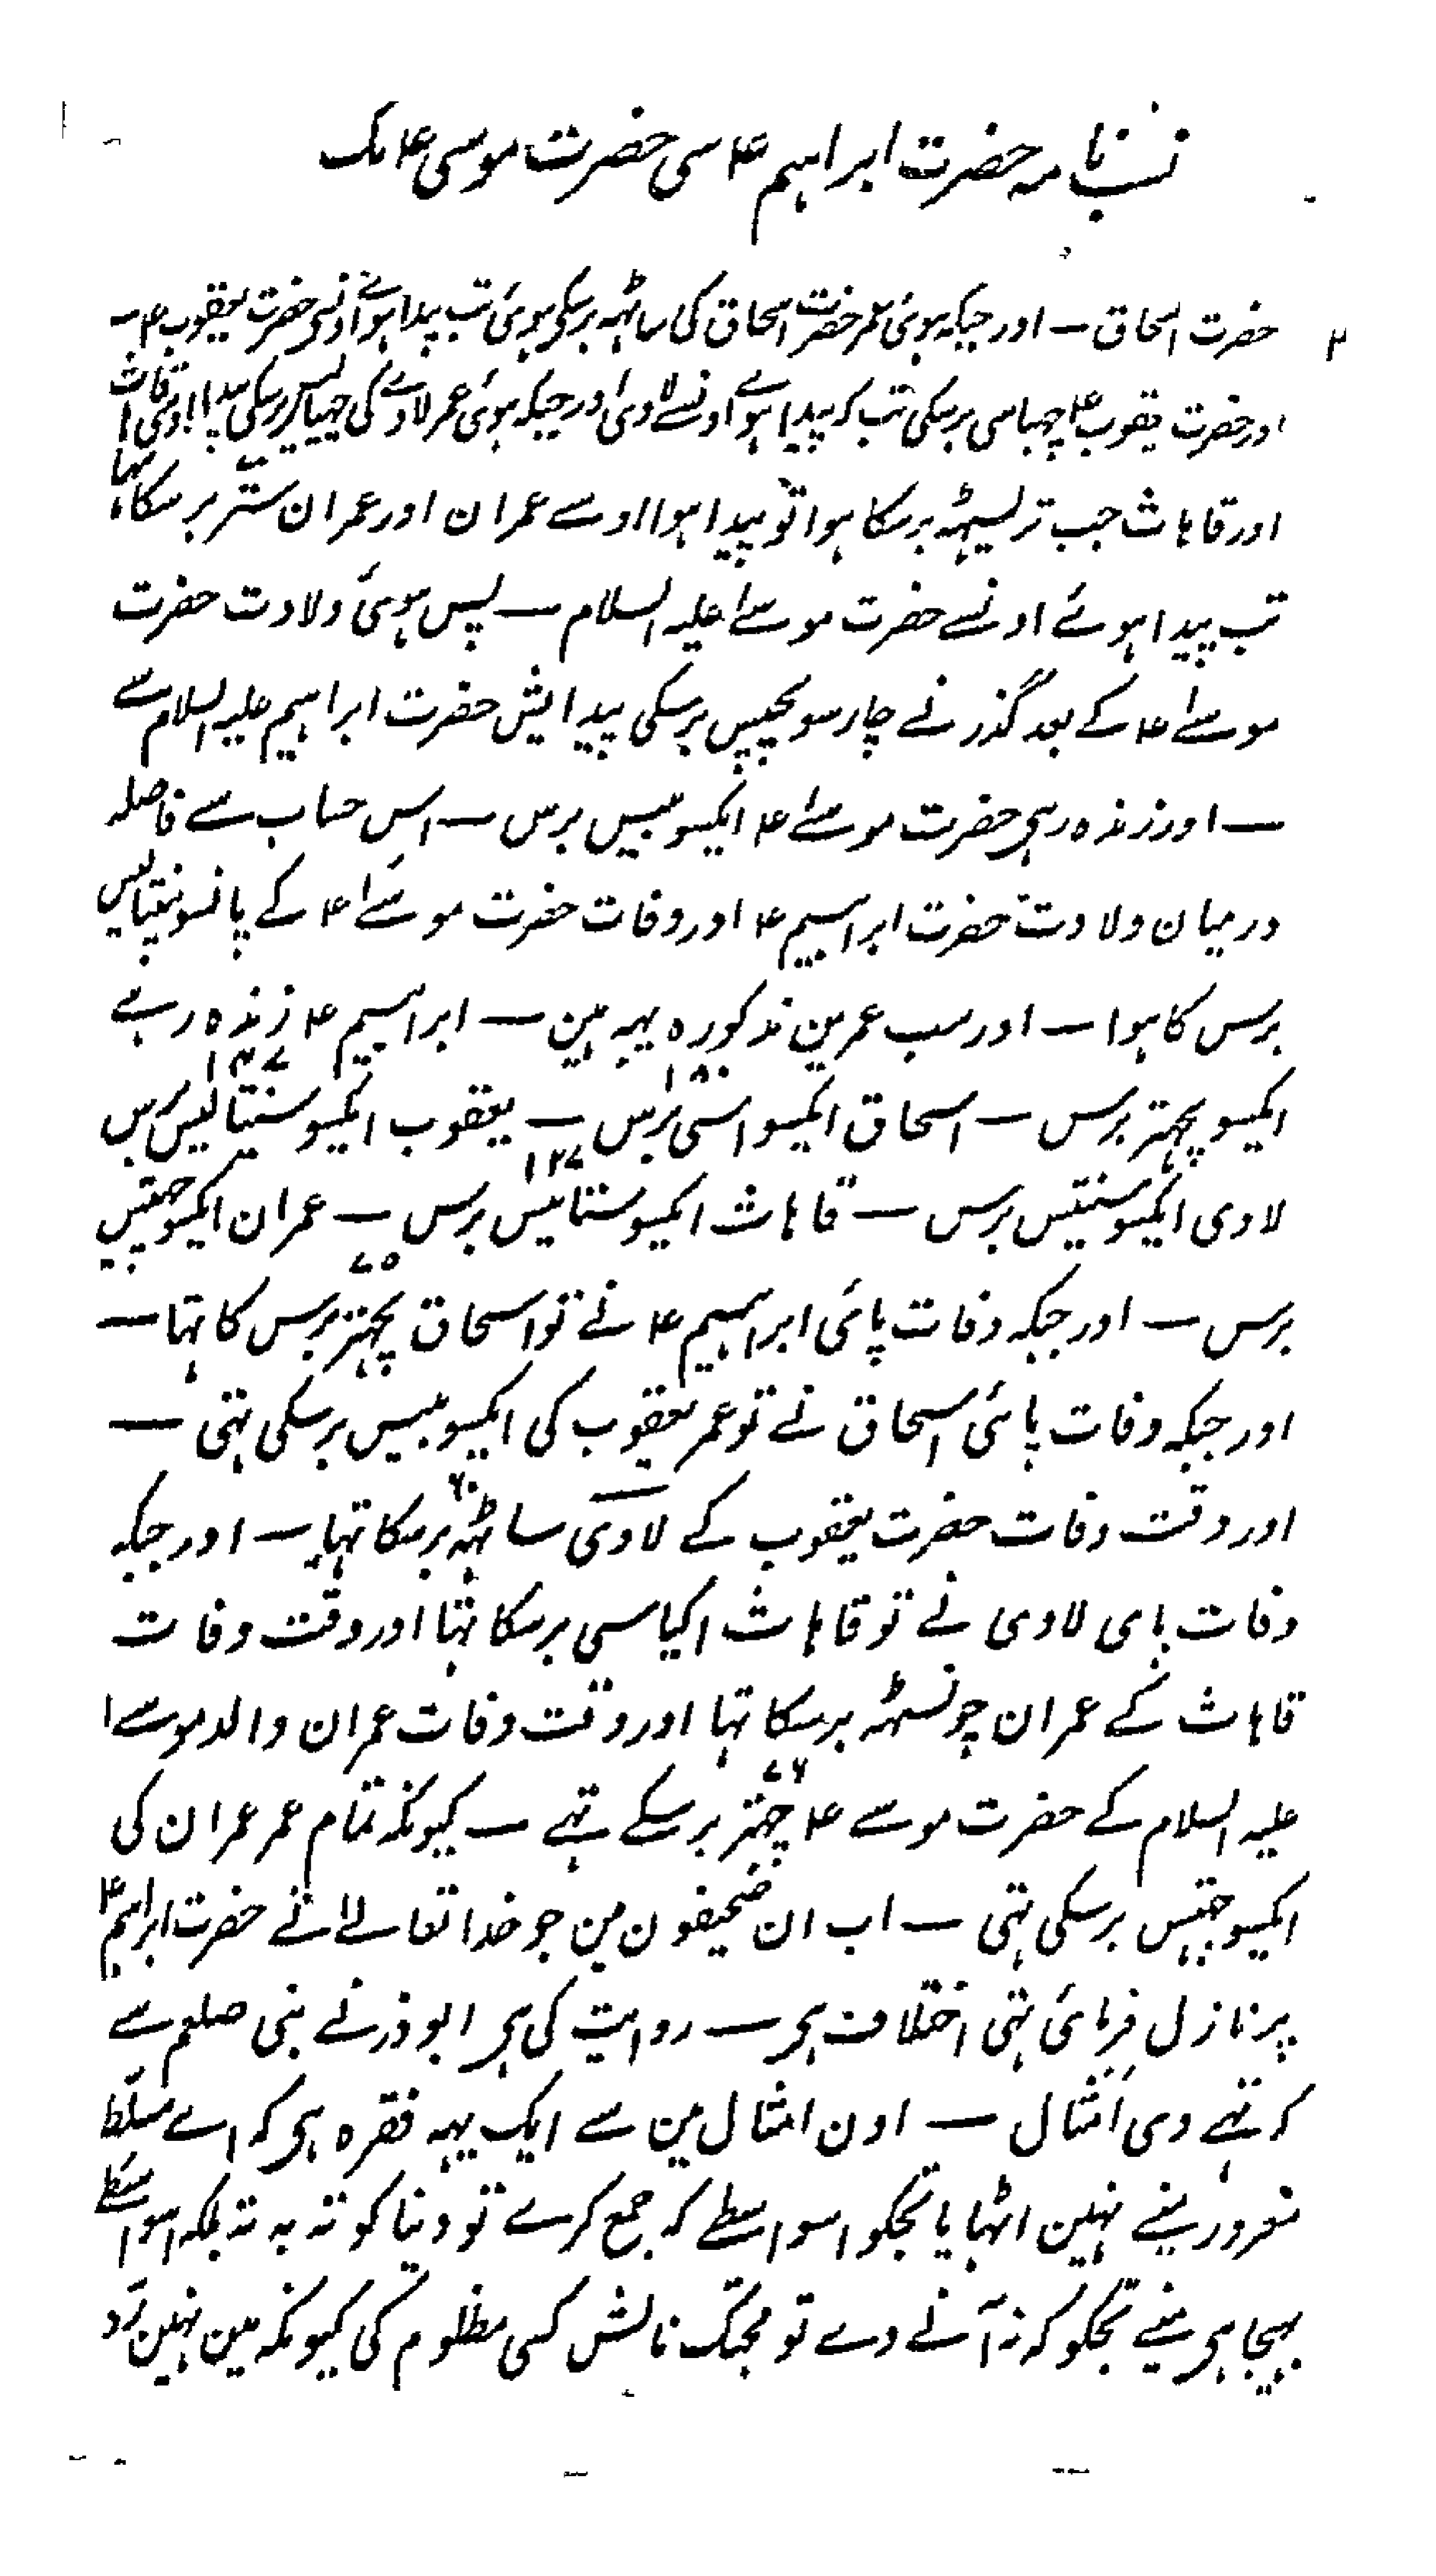 نسبنامہ حضرت ابراہیم ؑ سی حضرت موسی ؑ تک
۲ حضرت اسحاق — اور جبکہ ہوئی عمر حضرت اسحاق کی ساٹہہ برسکی ہوئی تب پیدا ہوئے اونسی حضرت یعقوب ؑ —
اور حضرت یعقوب ؑ چہیاسی برسکی تب کہ پیدا ہوے اونسے لاوی اور جبکہ ہوئی عمر لاوے کی چہیالیس برسکی پیدا اوسی قاہاث
اور قاہاث جب ترلیسٹہہ برسکا ہوا تو پیدا ہوا اوسے عمران اور عمران ستر برسکا تہا
تب پیدا ہوئے اونسے حضرت موسےٰ علیہ السلام — پس ہوئی ولادت حضرت
موسےٰ ؑ کے بعد گذرنے چارسو پچیس برسکی پیدایش حضرت ابراہیم علیہ السلام سے
— اور زندہ رہی حضرت موسےٰ ؑ ایکسو بیس برس — اس حساب سے فاصلہ
درمیان ولادت حضرت ابراہیم ؑ اور وفات حضرت موسےٰ ؑ کے پانسو پنتالیس
برس کا ہوا — اور سب عمرین مذکورہ یہہ ہین — ابراہیم ؑ زندہ رہے
ایکسو پچہتر برس — اسحاق ایکسو اسی ۱۸۰ برس — یعقوب ایکسو سنیتالیس ۱۴۷ برس
لاوی ایکسو سنتیس برس — قاہاث ایکسو ستائیس ۱۲۷ برس — عمران ایکسو چہتیس
برس — اور جبکہ وفات پائی ابراہیم ؑ نے تو اسحاق پچہتر ۷۵ برس کا تہا —
اور جبکہ وفات پائی اسحاق نے تو عمر یعقوب کی ایکسو بیس برسکی تہی —
اور وقت وفات حضرت یعقوب کے لاوی ساٹہہ ۶۰ برسکا تہا — اور جبکہ
وفات پای لاوی نے تو قاہاث اکیاسی برسکا تہا اور وقت وفات
قاہاث کے عمران چونسٹہہ برسکا تہا اور وقت وفات عمران والد موسےٰ
علیہ السلام کے حضرت موسے ؑ چہتر ۷۶ برسکے تہے — کیونکہ تمام عمر عمران کی
ایکسو چہتیس برسکی تہی — اب ان صحیفون مین جو خدا تعالےٰ نے حضرت ابراہیم ؑ
پر نازل فرمائی تہی اختلاف ہی — روایت کی ہی ابوذر نے نبی صلعم سے
کہ تہے وی امثال — اون امثال مین سے ایک یہہ فقرہ ہی کہ اے مسلّط
مغرور مینے نہین اٹہایا تجکو اسواسطے کہ جمع کرے تو دنیا کو تہ بہ تہ بلکہ اسواسطے
بہیجا ہی مینے تجکو کہ نہ آنے دے تو مجتک نالش کسی مظلوم کی کیونکہ مین نہین رَد